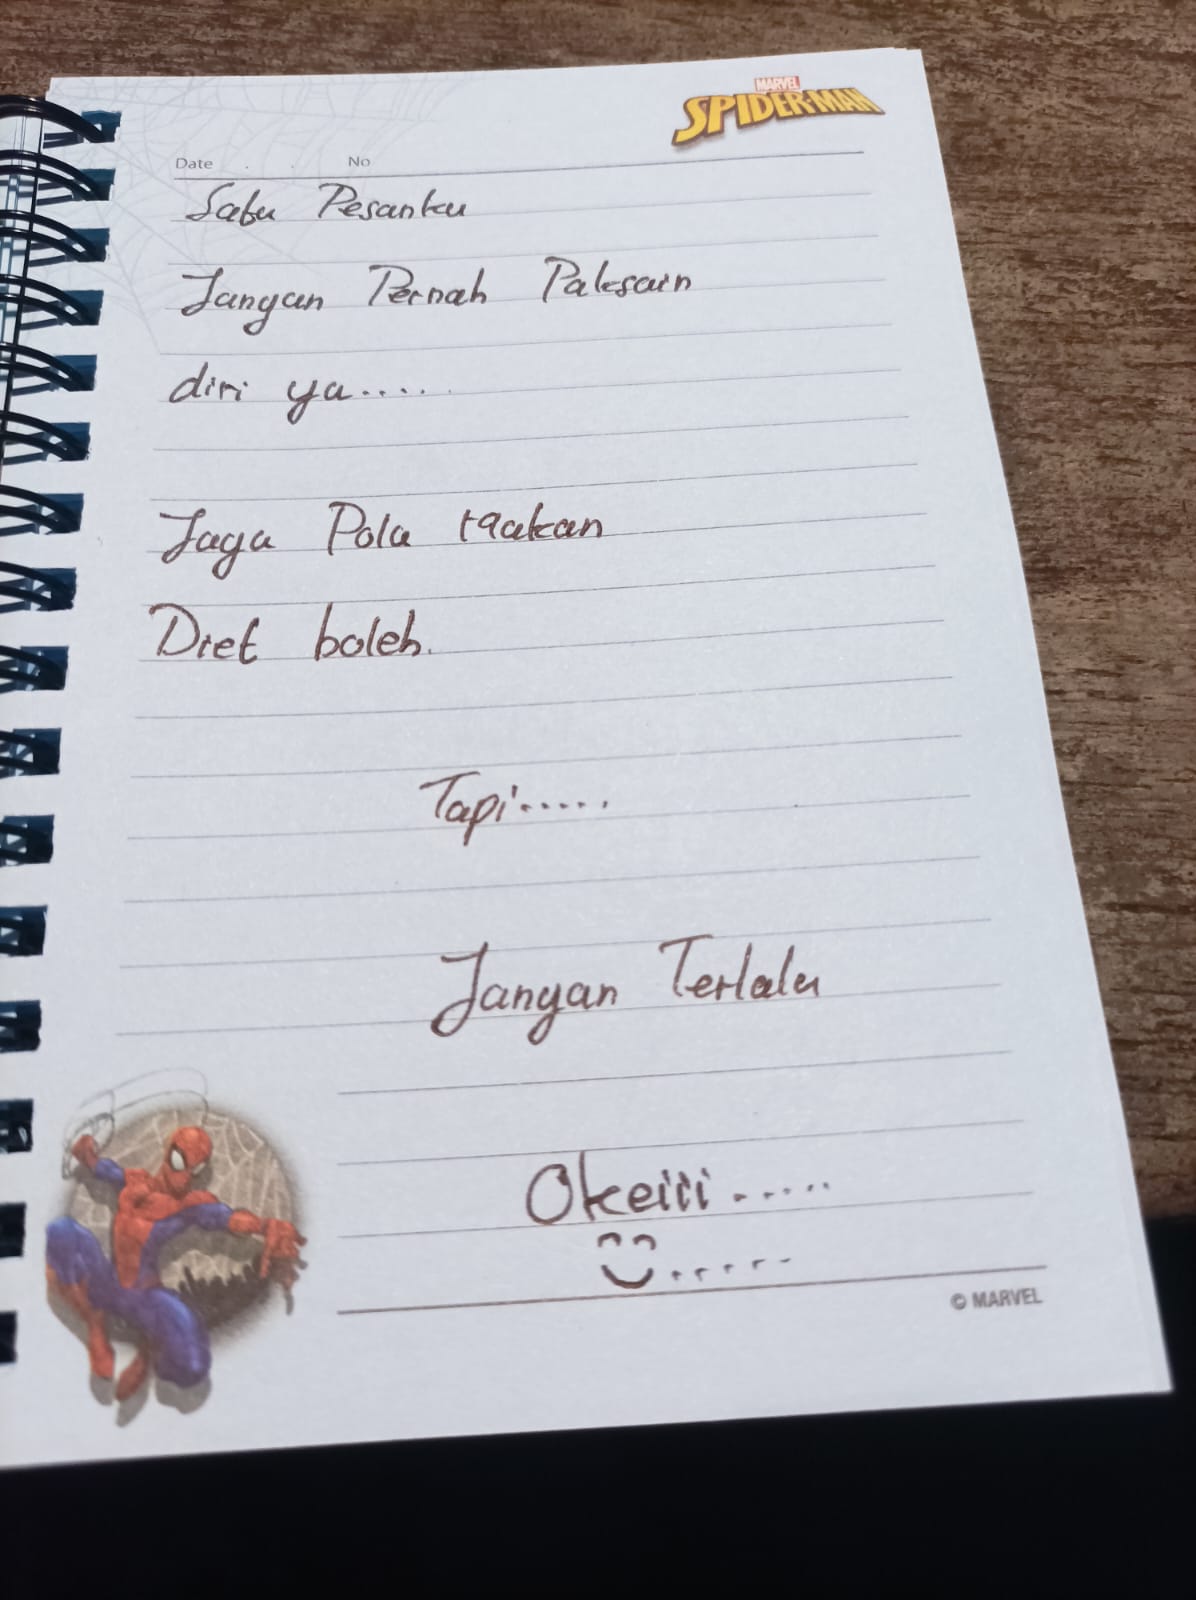 MARVEL
SPIDER-MAN
Date . . No
Satu Pesanku
Jangan Pernah Paksain
diri ya.....
Jaga Pola Makan
Diet boleh.
Tapi.....
Jangan Terlalu
Okeiii.....
© MARVEL